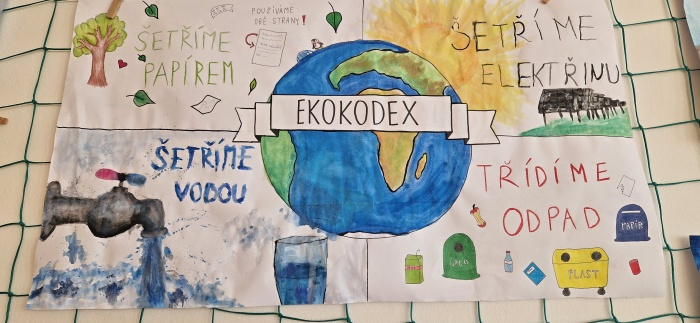 ŠETŘÍME
PAPÍREM
POUŽÍVÁME
OBĚ STRANY!
ŠETŘÍME
ELEKTŘINU
EKOKODEX
ŠETŘÍME
VODOU
TŘÍDÍME
ODPAD
PAPÍR
PLAST